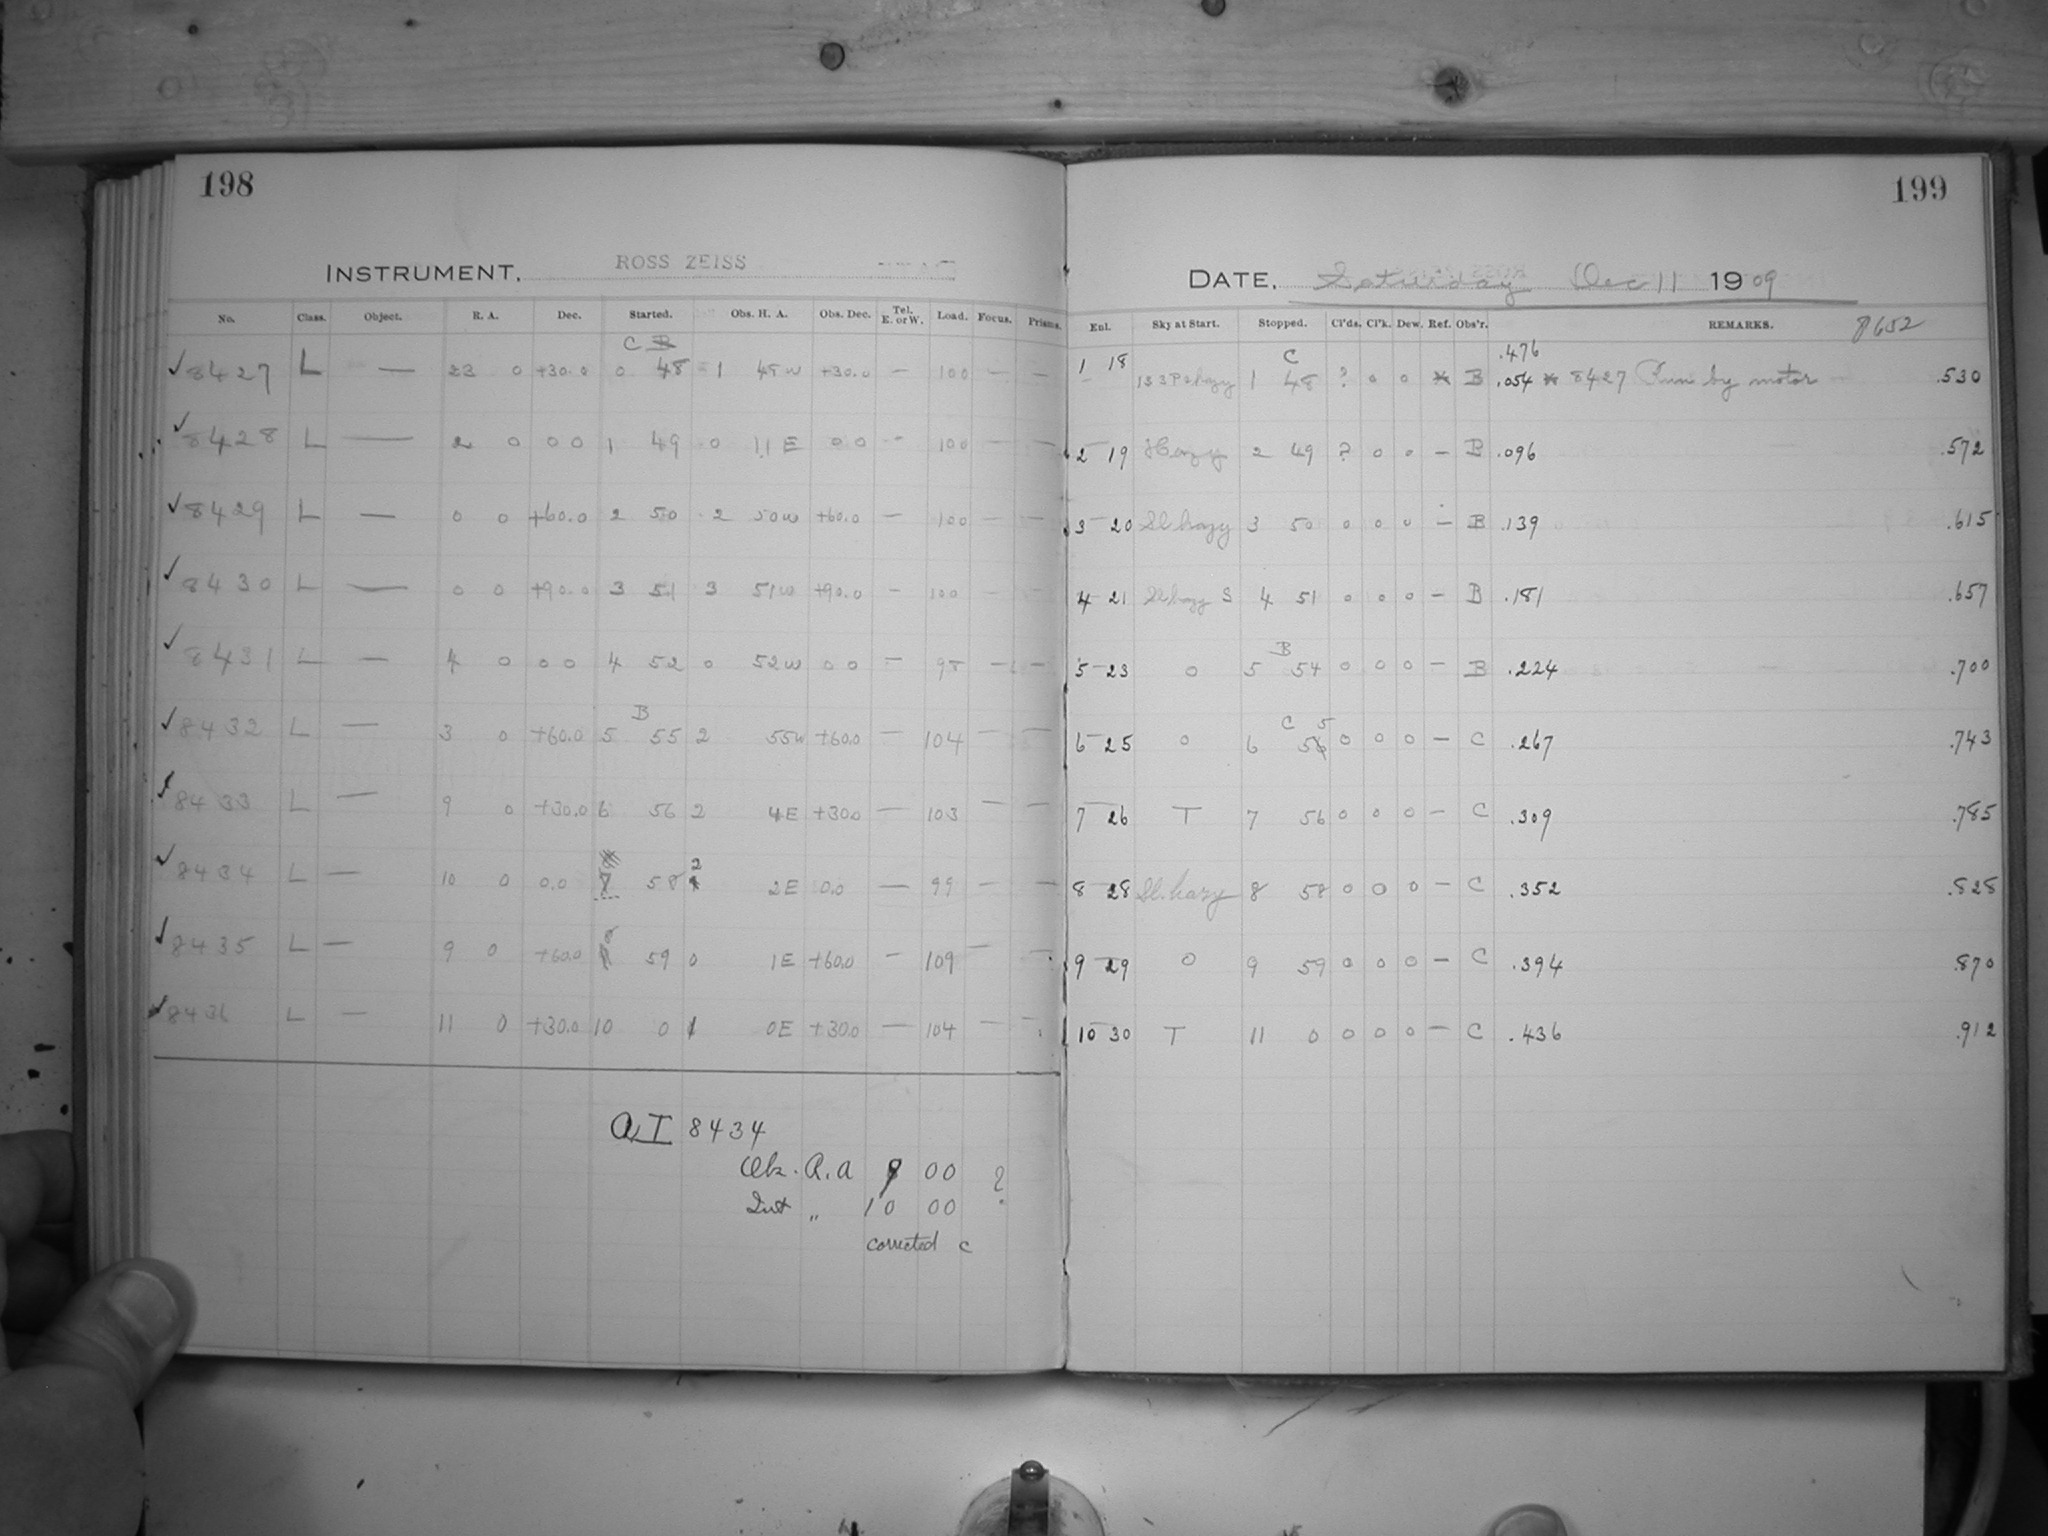 198
INSTRUMENT. ROSS ZEISS
No. Class. Object. R. A. Dec. Started. Obs. H. A. Obs. Dec. Tel. E. or W. Load. Focus. Prisms.
C B
✓ 8427 L — 23 0 +30.0 0 48 1 48w +30.0 — 100 — —
✓ 8428 L — 2 0 0 0 1 49 0 11 E 0 0 — 100 — —
✓ 8429 L — 0 0 +60.0 2 50 2 50w +60.0 — 100 — —
✓ 8430 L — 0 0 +90.0 3 51 3 51w +90.0 — 100 — —
✓ 8431 L — 4 0 0 0 4 52 0 52w 0 0 — 98 — —
B
✓ 8432 L — 3 0 +60.0 5 55 2 55w +60.0 — 104 — —
✓ 8433 L — 9 0 +30.0 6 56 2 4E +30.0 — 103 — —
2
✓ 8434 L — 10 0 0.0 7 58 2E 0.0 — 99 — —
✓ 8435 L — 9 0 +60.0 8 59 0 1E +60.0 — 109 — —
✓ 8436 L — 11 0 +30.0 10 0 1 0E +30.0 — 104 — —
AI 8434
Obs. R.A 9 00 ?
Int „ 10 00
corrected c
199
DATE. Saturday Dec 11 1909
Enl. Sky at Start. Stopped. Cl'ds. Cl'k. Dew. Ref. Obs'r. REMARKS. 8652
C .476
1 18 hazy 1 48 ? 0 0 * B .054 * 8427 Run by motor .530
2 19 Hazy 2 49 ? 0 0 — B .096 .572
3 20 Sl hazy 3 50 0 0 0 — B .139 .615
4 21 Sl hazy S 4 51 0 0 0 — B .181 .657
B
5 23 0 5 54 0 0 0 — B .224 .700
C 5
6 25 0 6 56 0 0 0 — C .267 .743
7 26 T 7 56 0 0 0 — C .309 .785
8 28 Sl. hazy 8 58 0 0 0 — C .352 .828
9 29 0 9 59 0 0 0 — C .394 .870
10 30 T 11 0 0 0 0 — C .436 .912